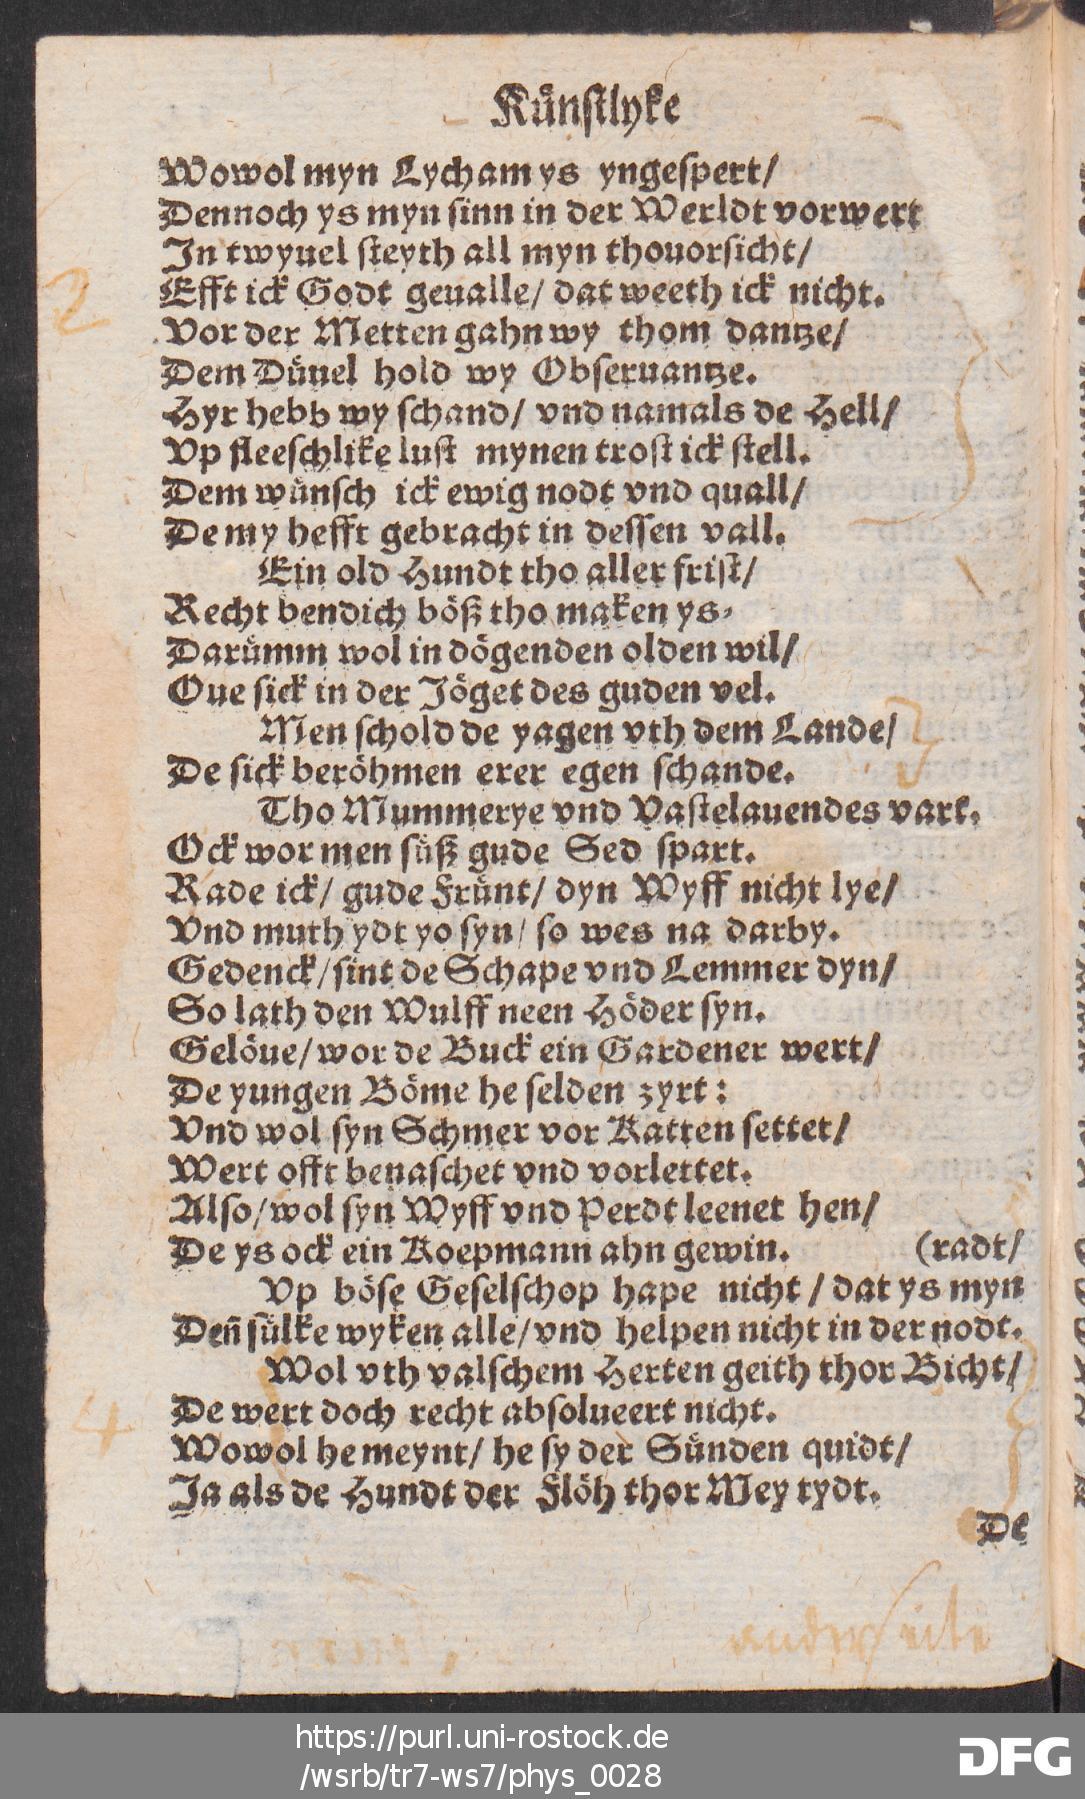 Kuͤnstlyke
Wowol myn Lycham ys yngespert/
Dennoch ys myn sinn in der Werldt vorwert
In twyuel steyth all myn thouorsicht/
Efft ick Godt geualle/ dat weeth ick nicht.
Vor der Metten gahn wy thom dantze/
Dem Duͤuel hold wy Obseruantze.
Hyr hebb wy schand/ vnd namals de Hell/
Vp fleeschlike lust mynen trost ick stell.
Dem wuͤnsch ick ewig nodt vnd quall/
De my hefft gebracht in dessen vall.
Ein old Hundt tho aller frist/
Recht bendich boͤß tho maken ys,
Daruͤmm wol in doͤgenden olden wil/
Oue sick in der Joͤget des guden vel.
Men schold de yagen vth dem Lande/
De sick beroͤhmen erer egen schande.
Tho Mummerye vnd Vastelauendes vart.
Ock wor men suͤß gude Sed spart.
Rade ick/ gude Fruͤnt/ dyn Wyff nicht lye/
Vnd muth ydt yo syn/ so wes na darby.
Gedenck/ sint de Schape vnd Lemmer dyn/
So lath den Wulff neen Hoͤder syn.
Geloͤue/ wor de Buck ein Gardener wert/
De yungen Boͤme he selden zyrt:
Vnd wol syn Schmer vor Katten settet/
Wert offt benaschet vnd vorlettet.
Also/ wol syn Wyff vnd Perdt leenet hen/
De ys ock ein Koepmann ahn gewin. (radt/
Vp boͤse Geselschop hape nicht / dat ys myn
Deñ suͤlke wyken alle/ vnd helpen nicht in der nodt.
Wol vth valschem Herten geith thor Bicht/
De wert doch recht absolueert nicht.
Wowol he meynt/ he sy der Suͤnden quidt/
Ja als de Hundt der Floͤh thor Mey tydt.
De
2
4
https://purl.uni-rostock.de
/wsrb/tr7-ws7/phys_0028
DFG